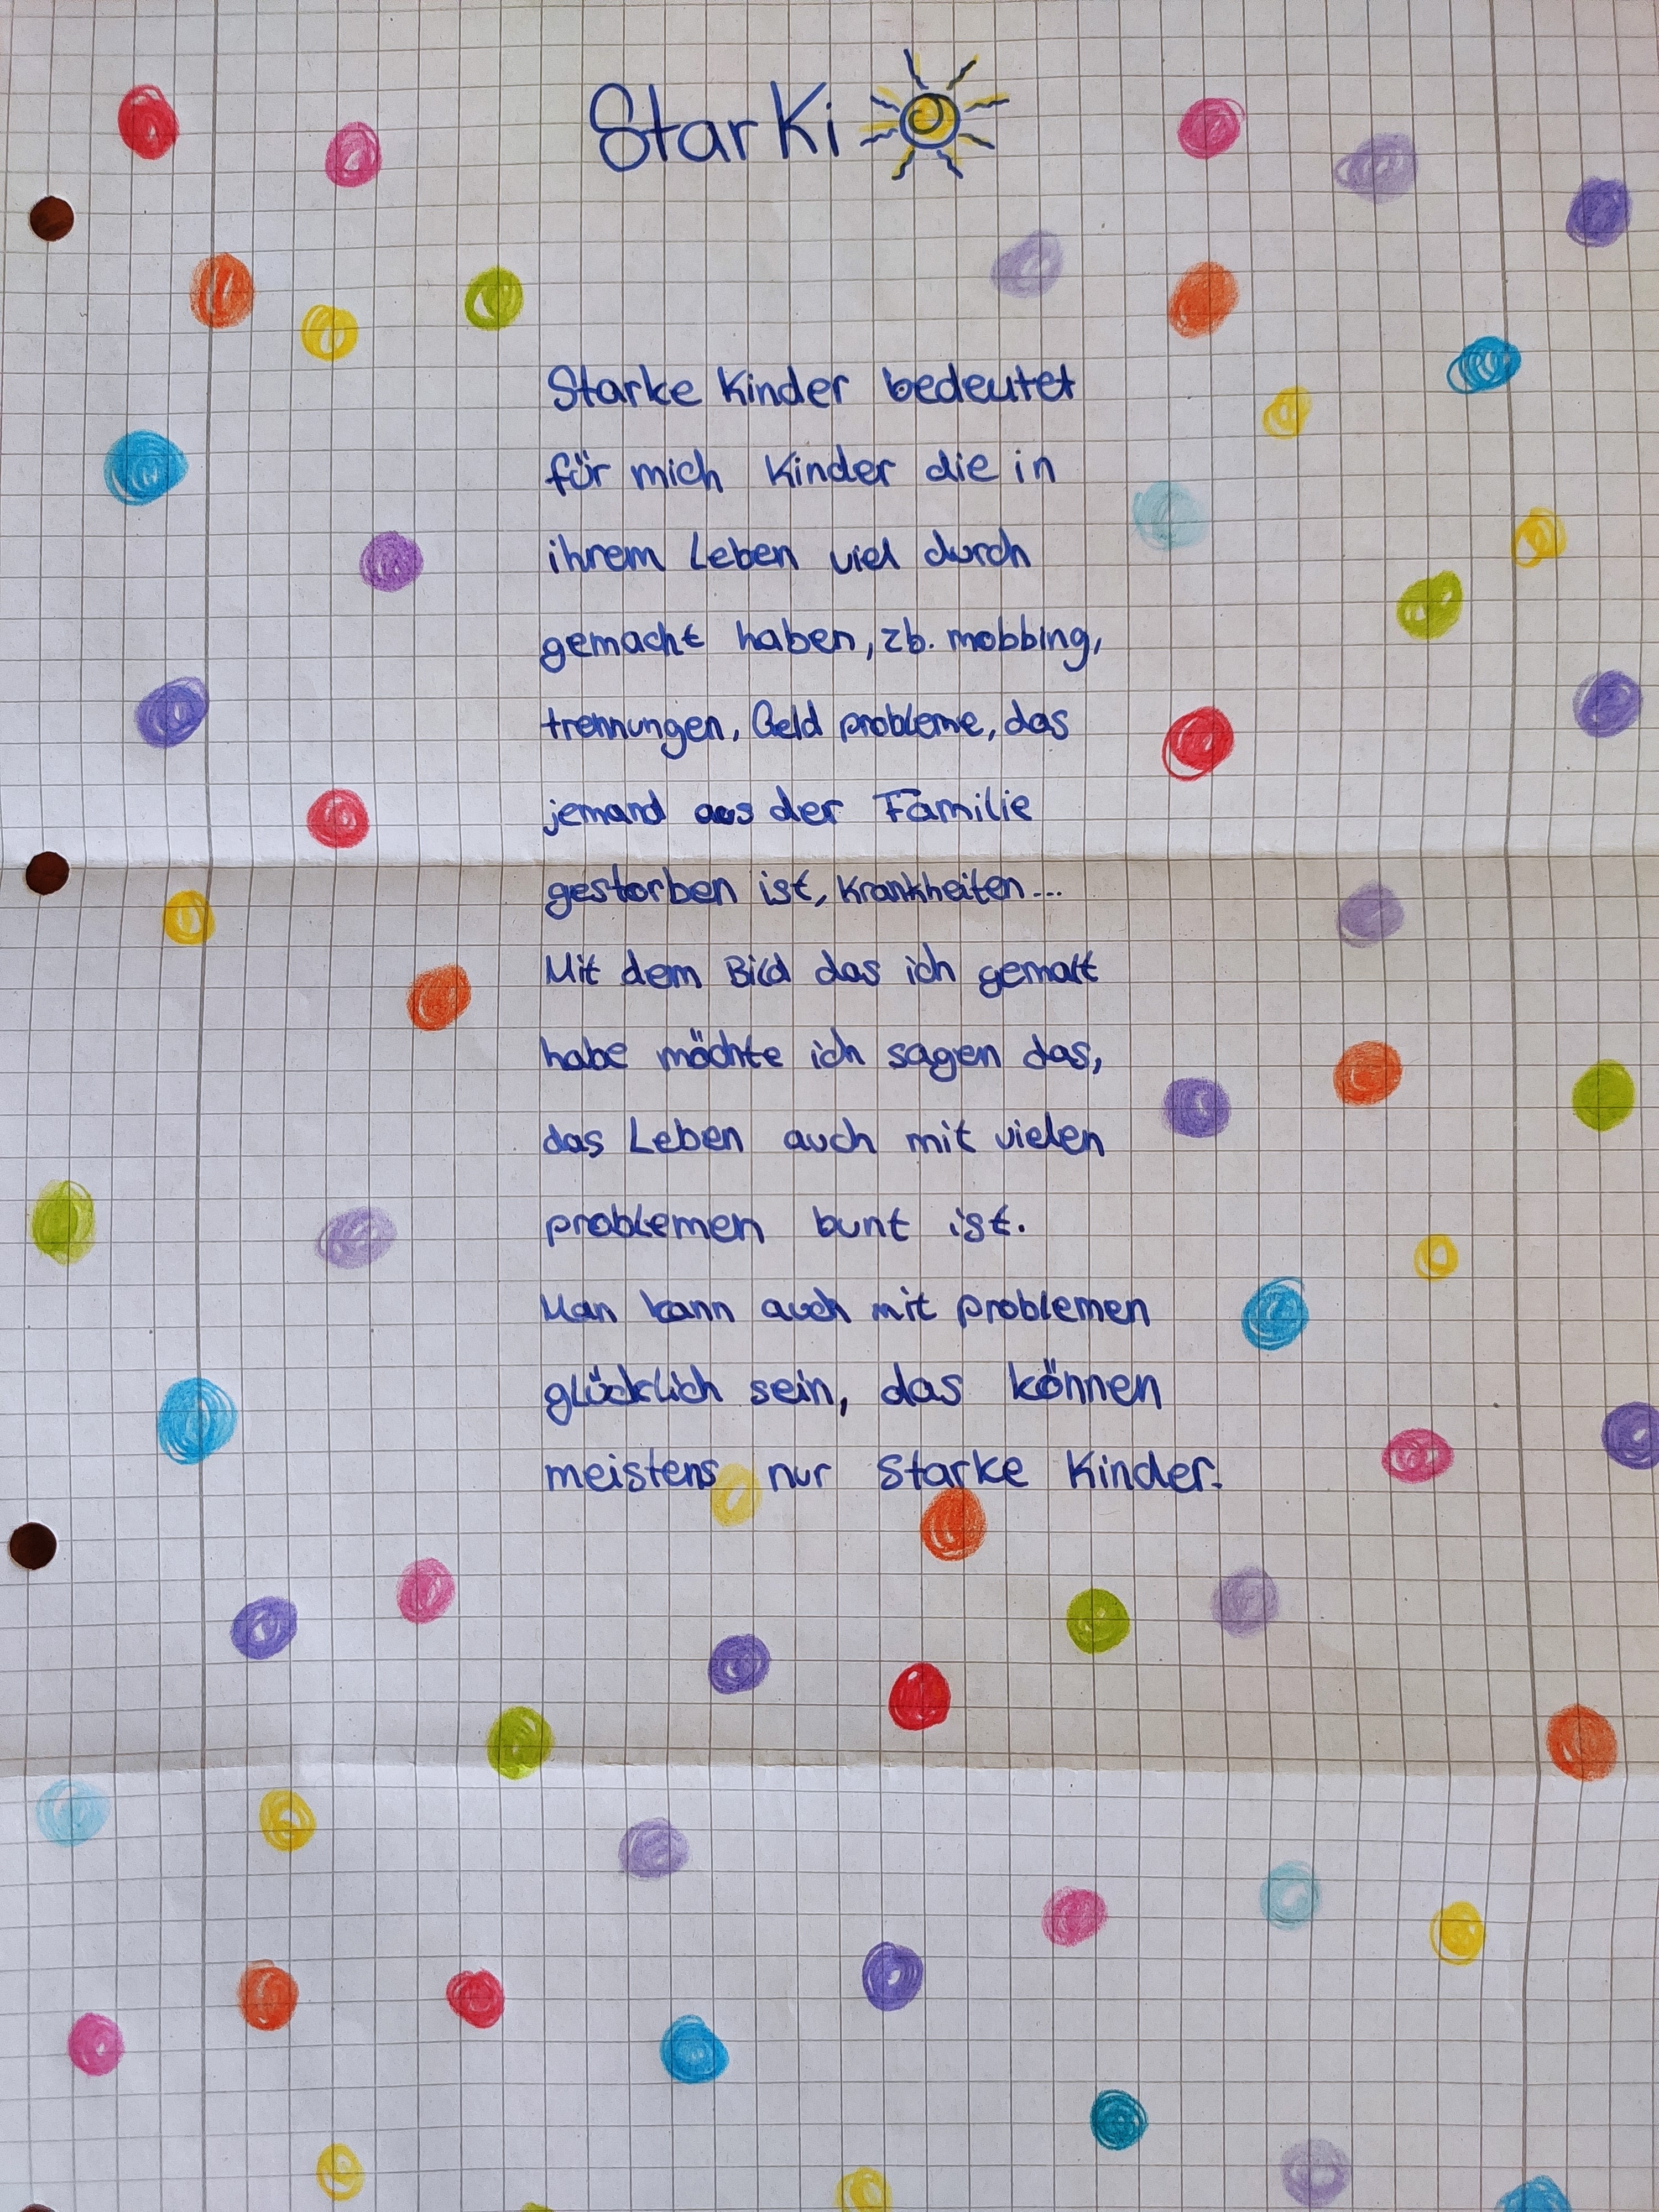 StarKi
Starke Kinder bedeutet
für mich Kinder die in
ihrem Leben viel durch
gemacht haben, zb. mobbing,
trennungen, Geld probleme, das
jemand aus der Familie
gestorben ist, Krankheiten...
Mit dem Bild das ich gemalt
habe möchte ich sagen das,
das Leben auch mit vielen
problemen bunt ist.
Man kann auch mit problemen
glücklich sein, das können
meistens nur starke Kinder.